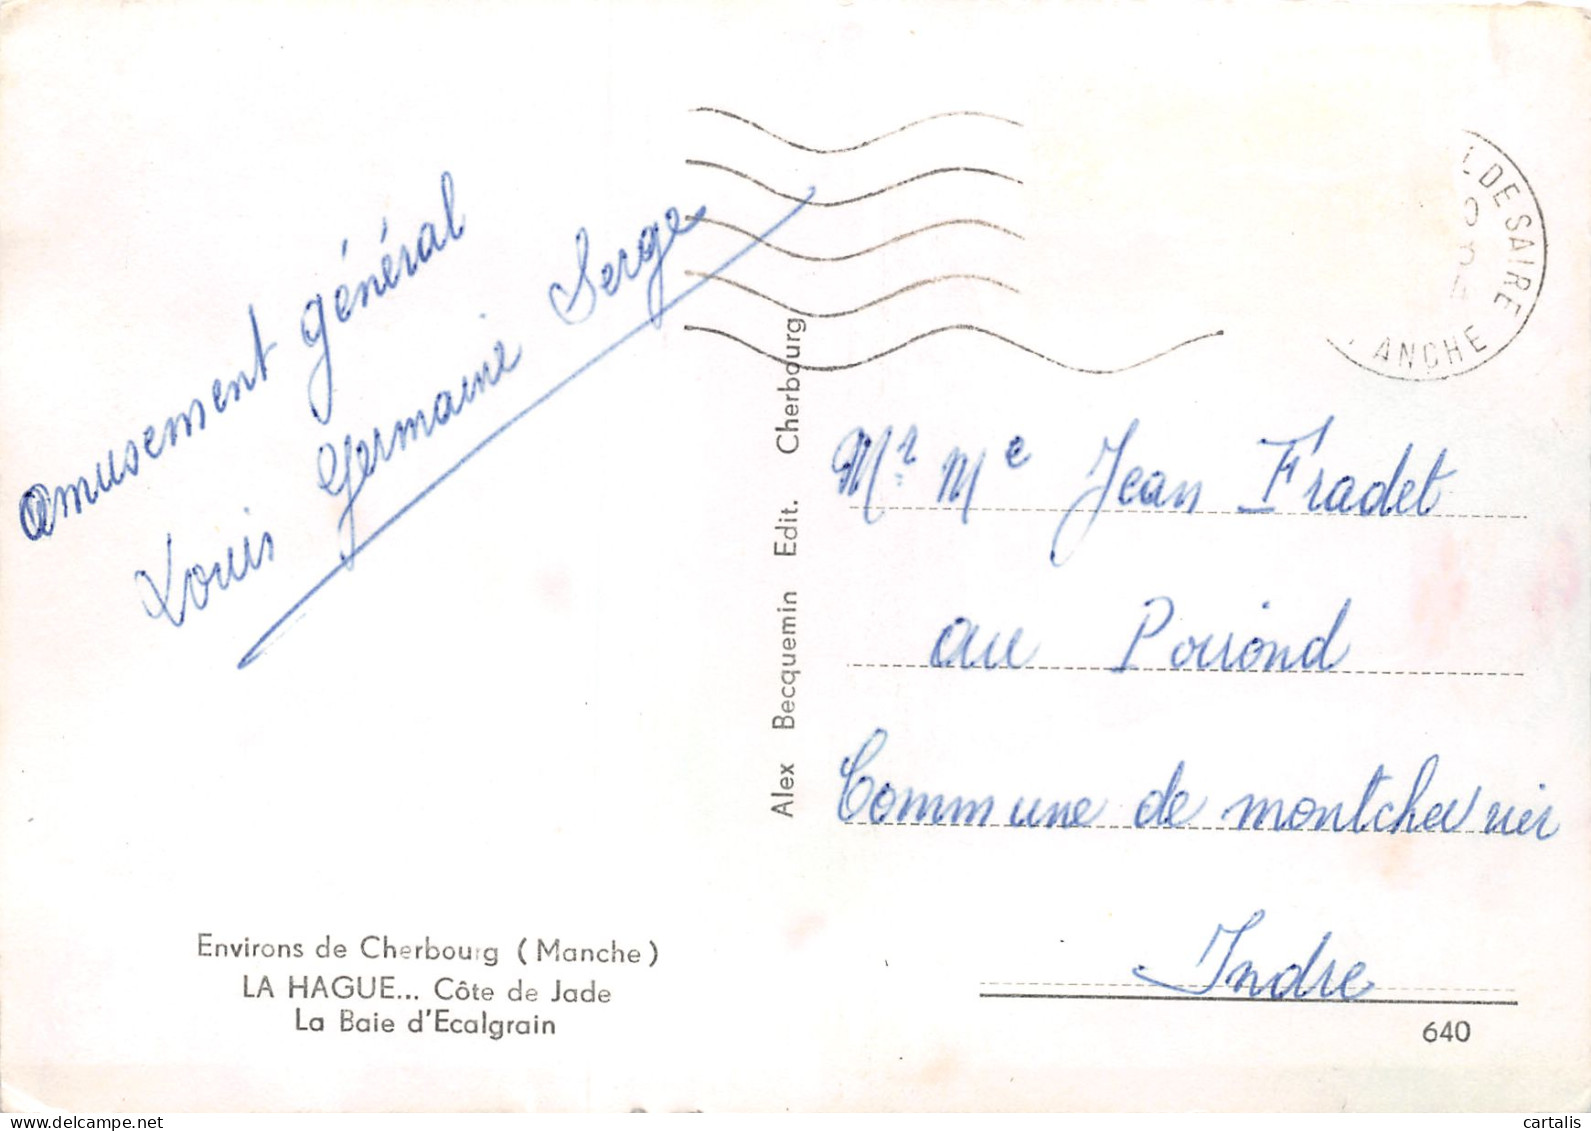 Amusement général
Louis Germaine Serge
Environs de Cherbourg (Manche)
LA HAGUE... Côte de Jade
La Baie d'Ecalgrain
Alex Becquemin Edit. Cherbourg
L DE SAIRE
ANCHE
Mr Me Jean Fradet
au Poiriond
Commune de montchevrier
Indre
640
cartalis